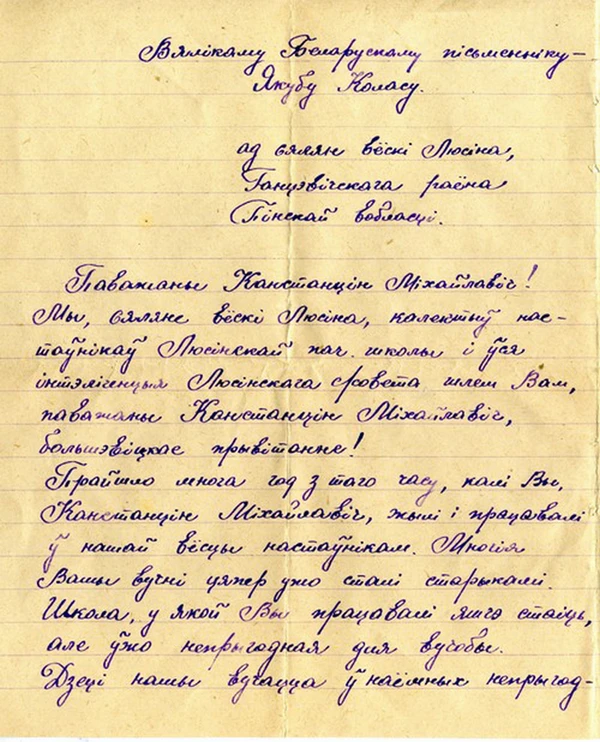 Вялікаму Беларускаму пісьменніку –
Якубу Коласу.
ад сялян вёскі Люсіна,
Ганцэвічскага раёна
Пінскай вобласці.
Паважаны Канстанцін Міхайлавіч!
Мы, сяляне вёскі Люсіна, калектыў нас-
таўнікаў Люсінскай пач. школы і ўся
інтэлігенцыя Люсінскага с/совета шлем Вам,
паважаны Канстанцін Міхайлавіч,
большэвіцкае прывітанне!
Прайшло многа год з таго часу, калі Вы,
Канстанцін Міхайлавіч, жылі і працавалі
ў нашай вёсцы настаўнікам. Многія
Вашы вучні цяжер ужо сталі старыкамі.
Школа, у якой Вы працавалі яшчэ стаіць,
але ўжо непрыгодная для вучобы.
Дзеці нашы вучацца ў наёмных непрыгод-